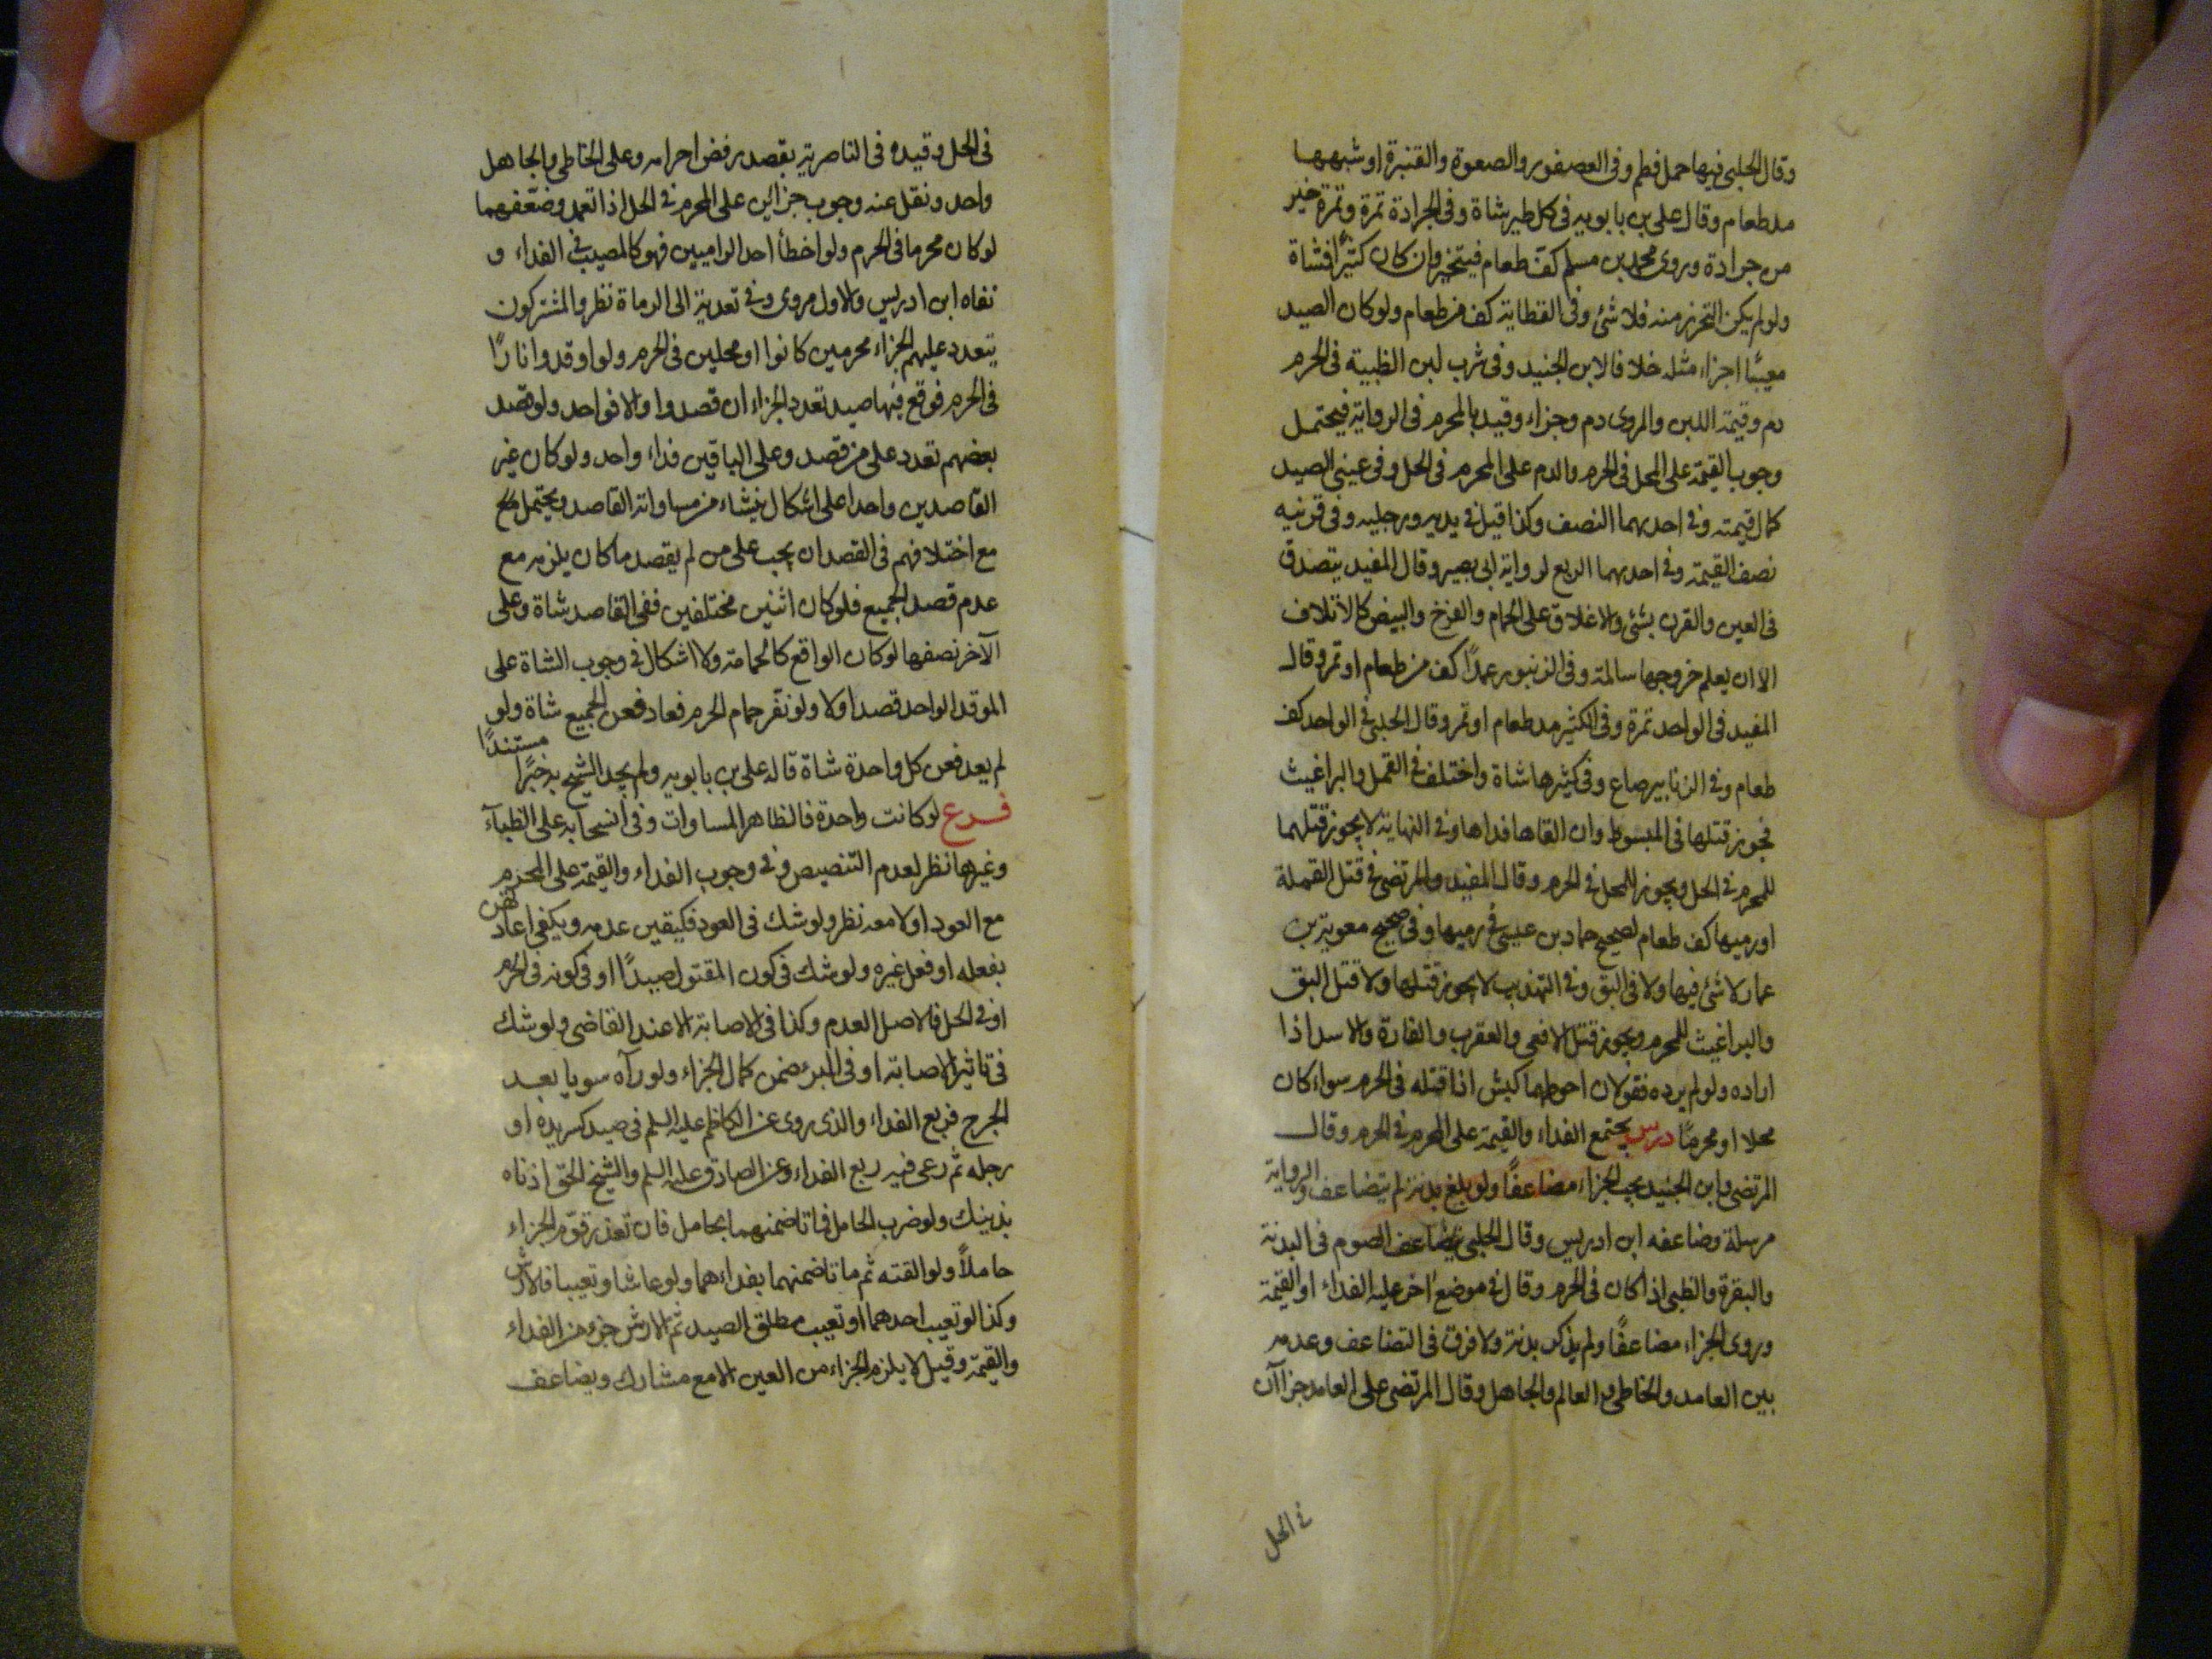 وقال الحلبى فيها حمل فطم وفى العصفور والصعوة والقنبرة او شبهها
مد طعام وقال على بن بابويه فى كل طير شاة وفى الجرادة تمرة وتمرة خير
من جرادة وروى محمد بن مسلم كف طعام فيتخير وان كان كثيرًا فشاة
ولو لم يكن التحرز منه فلا شئ وفى القطاية كف من طعام ولو كان الصيد
معيبًا اجزاء مثله خلافا لابن الجنيد وفى شرب لبن الظبية فى الحرم
دم وقيمة اللبن والمروى دم وجزاء وقيد بالمحرم فى الرواية فيحتمل
وجوب القيمة على المحل فى الحرم والدم على المحرم فى الحل وفى عينى الصيد
كمال قيمته وفى احديهما النصف وكذا قيل فى يديه ورجليه وفى قرنيه
نصف القيمة وفى احديهما الربع لرواية ابى بصير وقال المفيد يتصدق
فى العين والقرن بشئ والاغلاق على الحمام والفرخ والبيض كالاتلاف
الا ان يعلم خروجها سالمة وفى الزنبور عمدًا كف من طعام او تمر وقال
المفيد فى الواحد تمرة وفى الكثير مد طعام او تمر وقال الحلبى فى الواحد كف
طعام وفى الزنابير صاع وفى كثيرها شاة واختلف فى القمل والبراغيث
فجوز قتلها فى المبسوط وان القاها فداها وفى النهاية لا يجوز قتلهما
للمحرم فى الحل ويجوز للمحل فى الحرم وقال المفيد والمرتضى فى قتل القملة
او رميها كف طعام لصحيح حماد بن عيسى فى رميها وفى صحيح معوية بن
عمار لا شئ فيها ولا فى البق وفى التهذيب لا يجوز قتلها ولا قتل البق
والبراغيث للمحرم ويجوز قتل الافعى والعقرب والفارة والاسد اذا
اراده ولو لم يرده فقولان احوطهما كبش اذا قتله فى الحرم سواء كان
محلا او محرمًا درس يجتمع الفداء والقيمة على المحرم فى الحرم وقال
المرتضى وابن الجنيد يجب الجزاء مضاعفًا ولو بلغ بدنة لم يتضاعف والرواية
مرسلة وضاعفه ابن ادريس وقال الحلبى يتضاعف الصوم فى البدنة
والبقرة والظبى اذا كان فى الحرم وقال فى موضع آخر عليه الفداء او القيمة
وروى الجزاء مضاعفًا ولم يذكر بدنة ولا فرق فى التضاعف وعدمه
بين العامد والخاطى والعالم والجاهل وقال المرتضى على العامد جزاآن
فى الحل
فى الحل وقيده فى الناصرية بقصد رفض احرامه وعلى الخاطى والجاهل
واحد ونقل عنه وجوب جزائين على المحرم فى الحل اذا تعمد وضعّفهما
لو كان محرما فى الحرم ولو اخطأ احد الراميين فهو كالمصيب فى الفداء و
نفاه ابن ادريس والاول مروى وفى تعديته الى الرماة نظر والمشتركون
يتعدد عليهم الجزاء محرمين كانوا او محلين فى الحرم ولو اوقدوا نارًا
فى الحرم فوقع فيها صيد تعدد الجزاء ان قصدوا والا فواحد ولو قصد
بعضهم تعدد على من قصد وعلى الباقين فداء واحد ولو كان غير
القاصدين واحدا على اشكال ينشاء من مساواته القاصد ويحتمل مع
مع اختلافهم فى القصد ان يجب على من لم يقصد ما كان يلزمه مع
عدم قصد الجميع فلو كان اثنين مختلفين ففى القاصد شاة وعلى
الآخر نصفها لو كان الواقع كالحمامة ولا اشكال فى وجوب الشاة على
الموقد الواحد قصد او لا ولو نفّر حمام الحرم فعاد فعن الجميع شاة ولو
لم يعد فعن كل واحدة شاة قاله على بن بابويه ولم يجد الشيخ به خبرًا مستندًا
فرع لو كانت واحدة فالظاهر المساوات وفى انسحابه على الظبآء
وغيرها نظر لعدم التنصيص وفى وجوب الفداء والقيمة على المحرم
مع العود او لا معه نظر ولو شك فى العود فكيقين عدمه ويكفى اعادتهن
بفعله او فعل غيره ولو شك فى كون المقتول صيدًا او فى كونه فى الحرم
او فى الحل فالاصل العدم وكذا فى الاصابة الا عند القاضى ولو شك
فى تاثير الاصابة او فى البرء ضمن كمال الجزاء ولو رآه سويا بعد
الجرح فربع الفداء والذى روى عن الكاظم عليه السلم فى صيد كسر يده او
رجله ثم رعى فيه ربع الفداء وعن الصادق عليه السلم والشيخ الحق اذناه
بذينك ولو ضرب الحامل فماتا ضمنهما بحامل فان تعذر قوّم الجزاء
حاملاً ولو القته ثم ماتا ضمنهما بفداءهما ولو عاشا وتعيبا فالارش
وكذا لو تعيب احدهما او تعيب مطلق الصيد ثم الارش جزء من الفداء
والقيمة وقيل لا يلزم الجزاء من العين الا مع مشارك ويضاعف